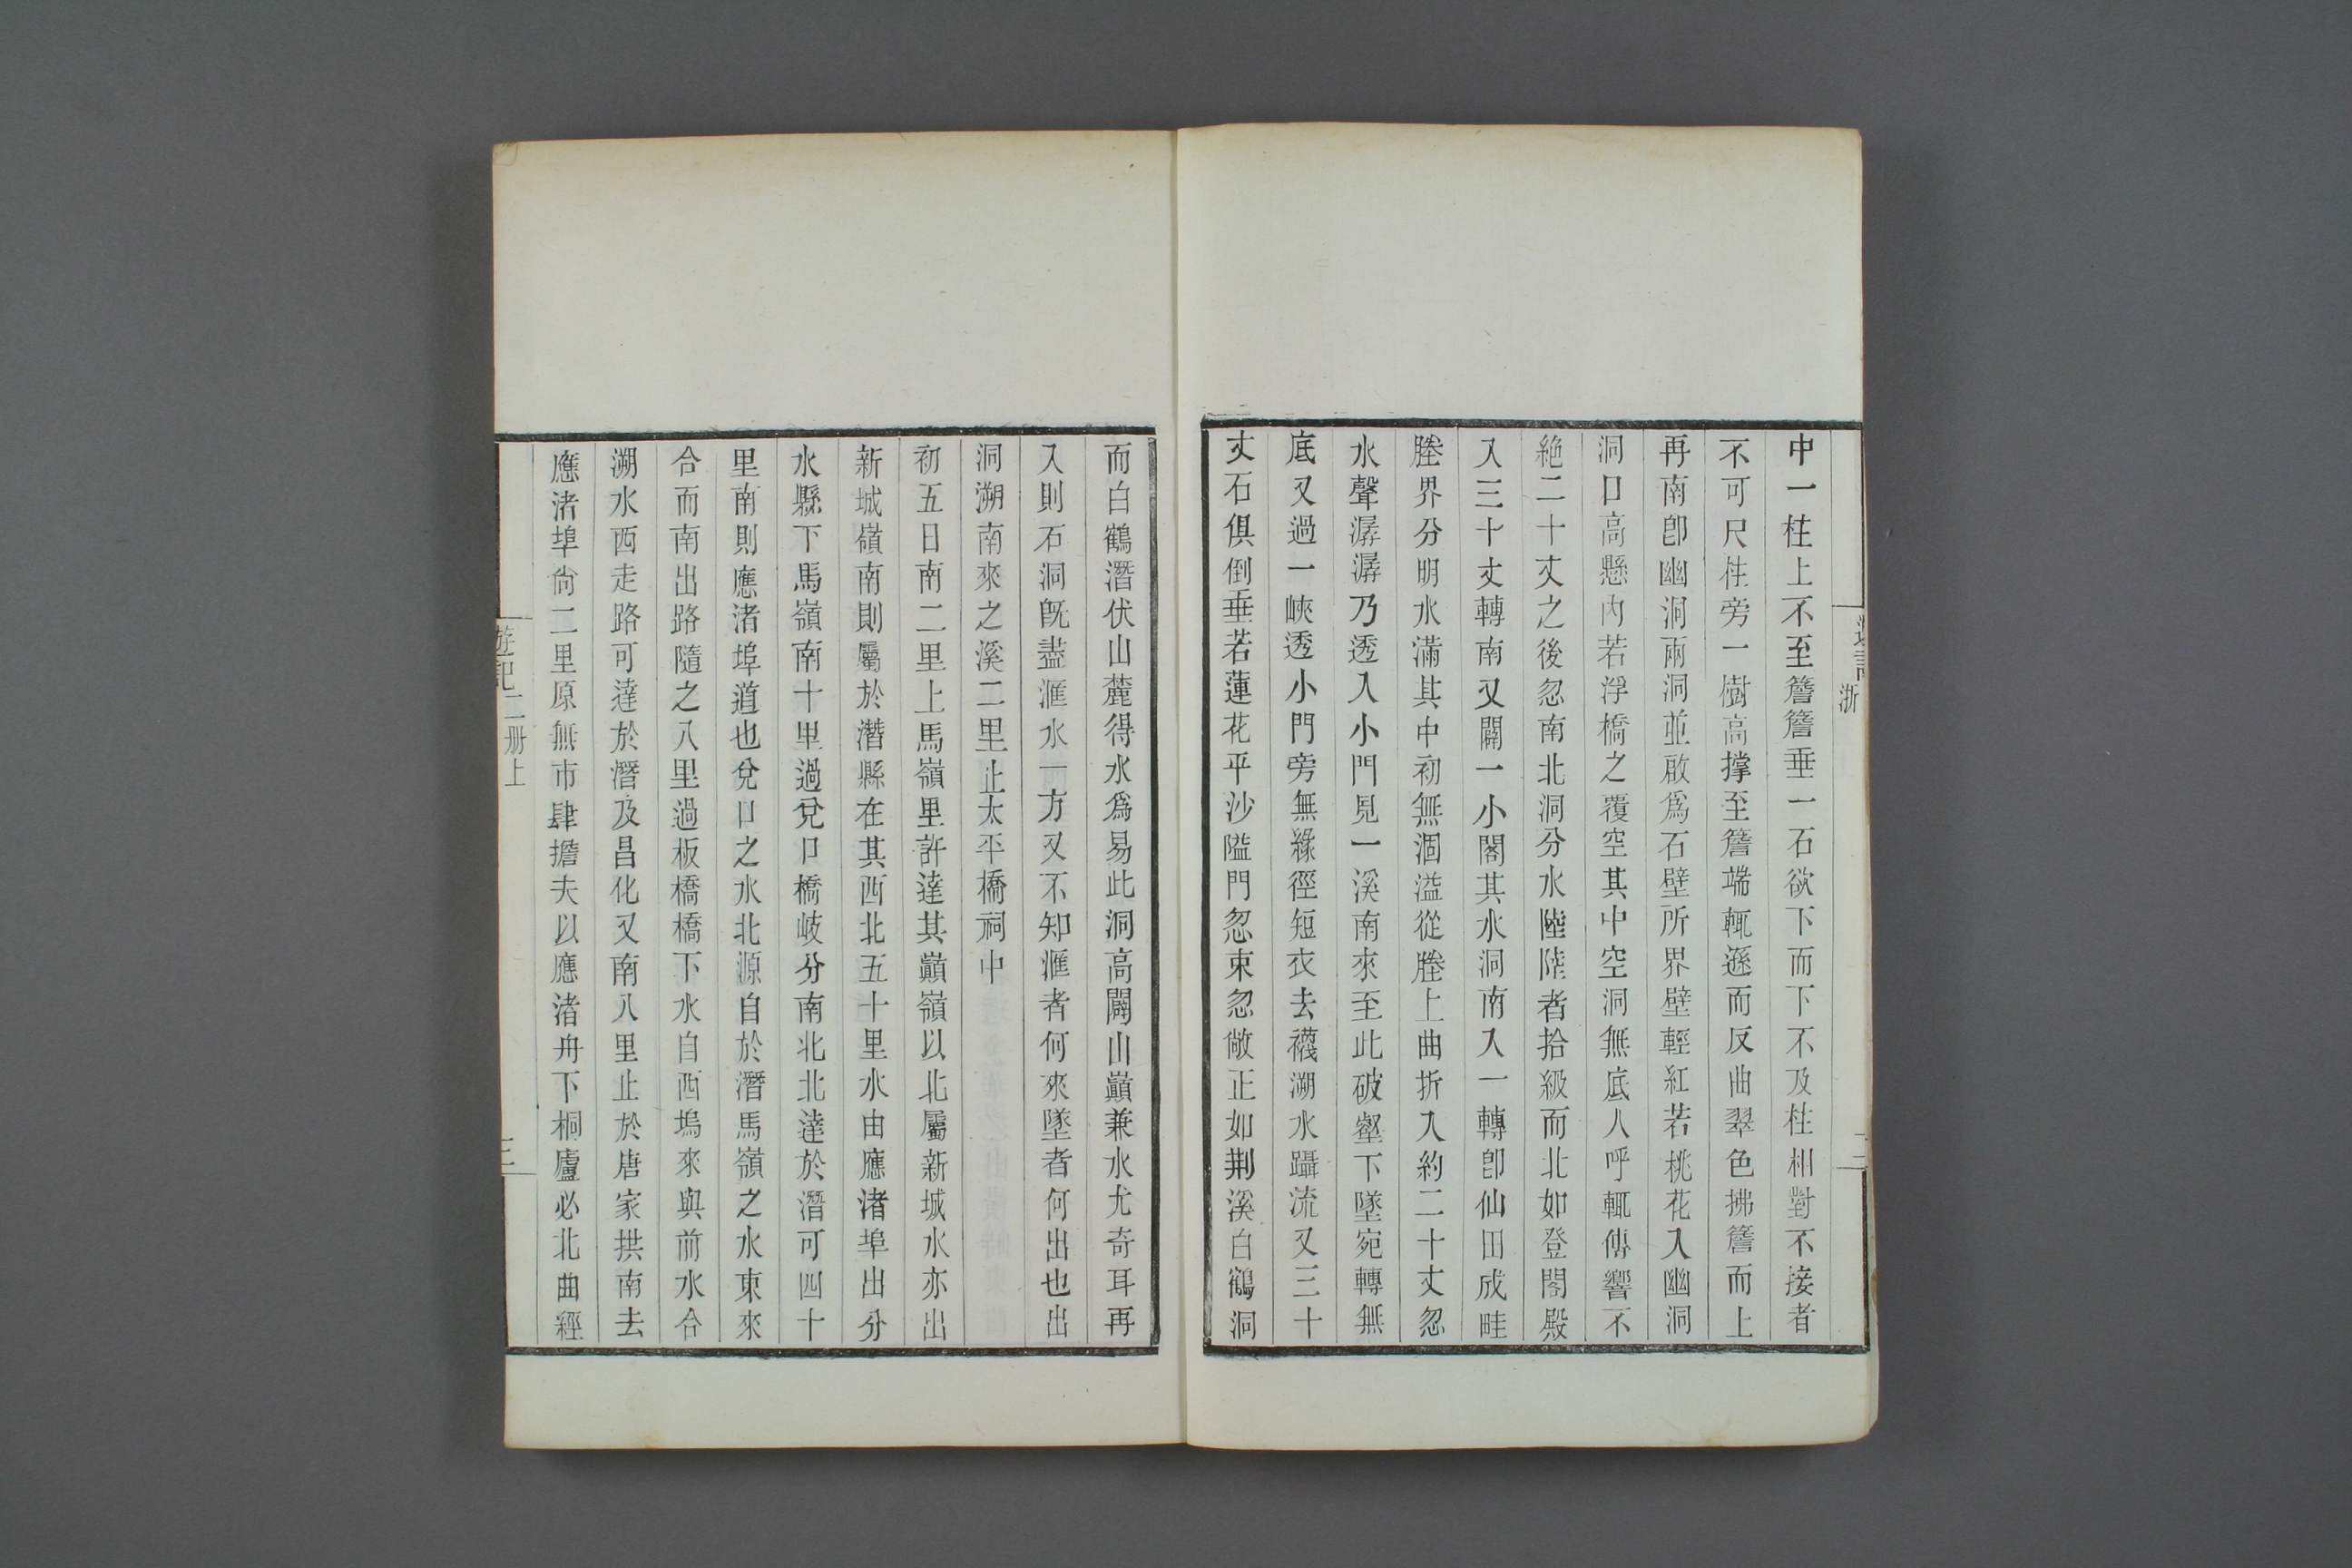 中一柱上不至簷簷垂一石欲下而下不及柱相對不接者
不可尺柱旁一樹高撐至簷端輒遜而反曲翠色拂簷而上
再南卽幽洞兩洞並啟爲石壁所界壁輕紅若桃花入幽洞
洞口高懸內若浮橋之覆空其中空洞無底人呼輒傳響不
絶二十丈之後忽南北洞分水陸陸者拾級而北如登閣殿
入三十丈轉南又闢一小閣其水洞南入一轉卽仙田成畦
塍界分明水滿其中初無涸溢從塍上曲折入約二十丈忽
水聲潺潺乃透入小門見一溪南來至此破壑下墜宛轉無
底又過一峽透小門旁無緣徑短衣去襪溯水躡流又三十
丈石俱倒垂若蓮花平沙隘門忽束忽敞正如荆溪白鶴洞
而白鶴潛伏山麓得水爲易此洞高闢山巓兼水尤奇耳再
入則石洞旣盡滙水一方又不知滙者何來墜者何出也出
洞溯南來之溪二里止太平橋祠中
初五日南二里上馬嶺里許達其巓嶺以北屬新城水亦出
新城嶺南則屬於潛縣在其西北五十里水由應渚埠出分
水縣下馬嶺南十里過兌口橋岐分南北北達於潛可四十
里南則應渚埠道也兌口之水北源自於潛馬嶺之水東來
合而南出路隨之八里過板橋橋下水自西塢來與前水合
溯水西走路可達於潛及昌化又南八里止於唐家拱南去
應渚埠尙二里原無市肆擔夫以應渚舟下桐廬必北曲經
遊記二册上
浙